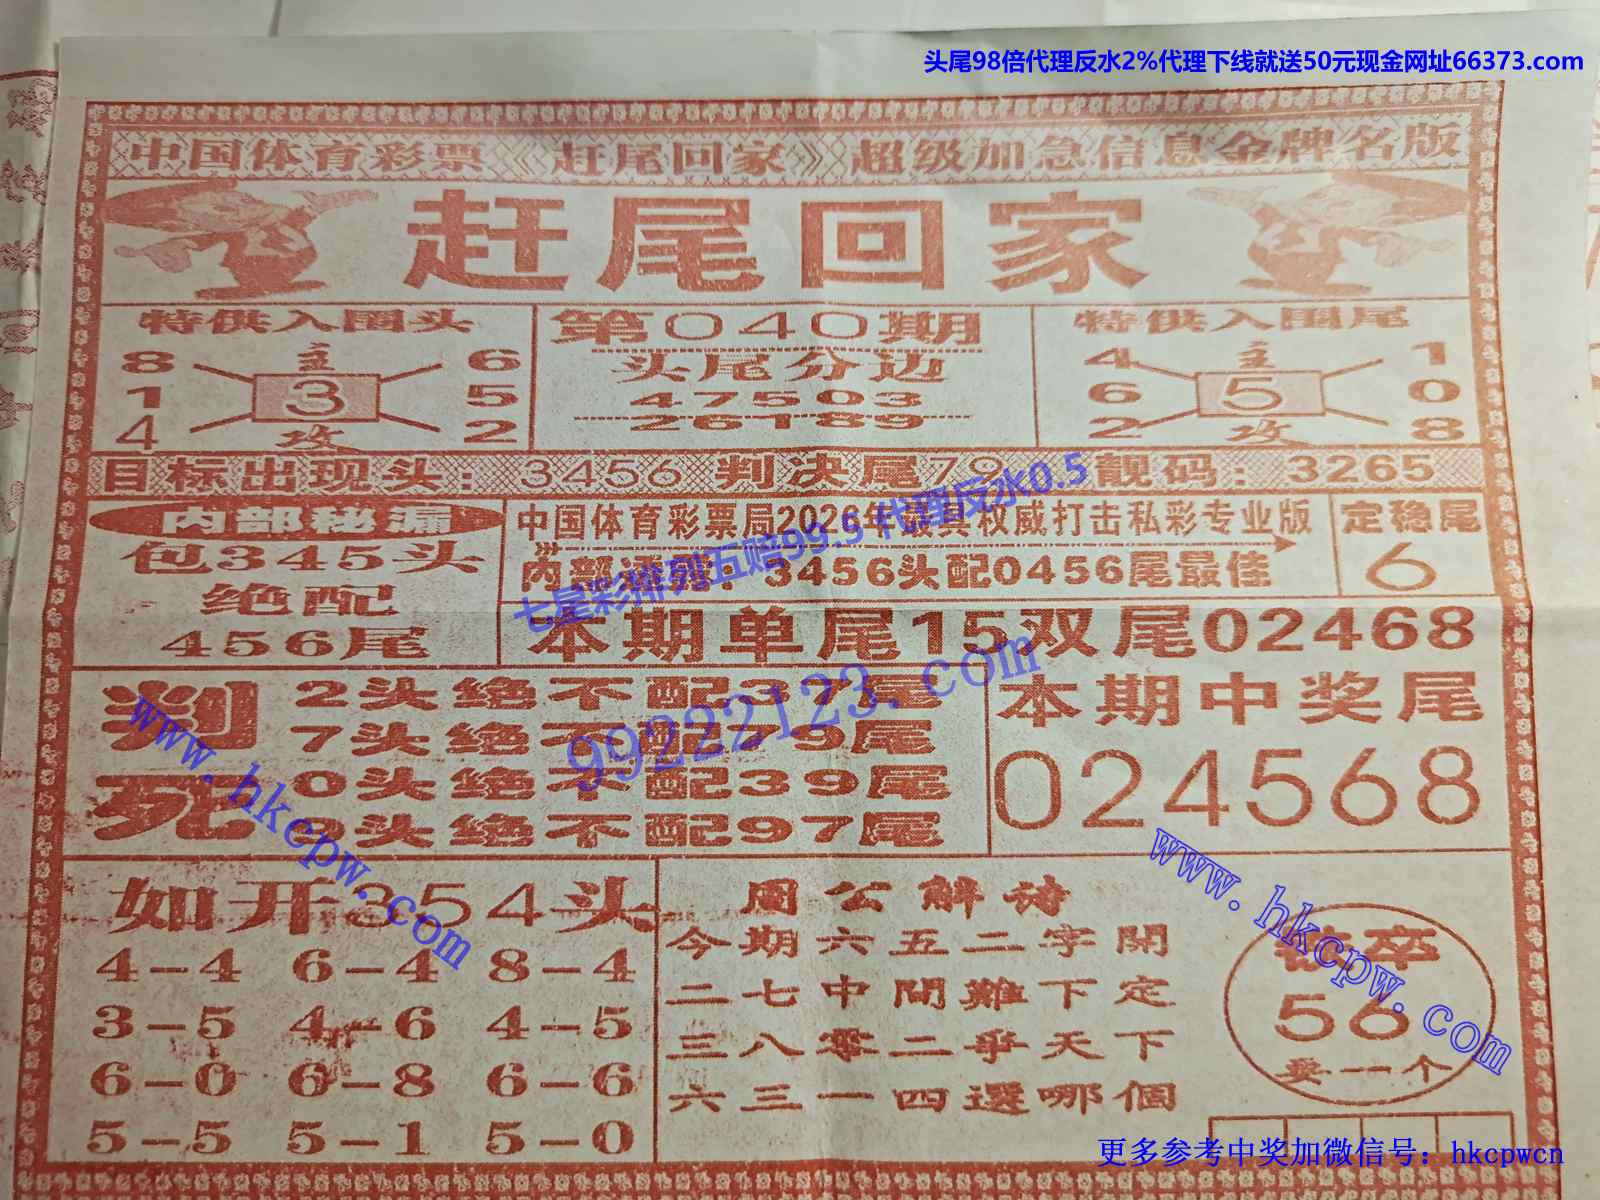 头尾98倍代理反水2%代理下线就送50元现金网址66373.com
中国体育彩票《赶尾回家》超级加急信息金牌名版
赶尾回家
特供入围头
8 主 6
1 3 5
4 攻 2
第040期
头尾分边
47503
26189
特供入围尾
4 主 1
6 5 0
2 攻 8
目标出现头：3456 判决尾79 靓码：3265
内部秘漏
包345头
绝配
456尾
中国体育彩票局2026年最具权威打击私彩专业版
内部 3456头配0456尾最佳
定稳尾
6
七星彩排列五赔99.5代理反水0.5
本期单尾15双尾02468
判死
2头绝不配37尾
7头绝不配75尾
0头绝不配39尾
头绝不配97尾
99222123.com
本期中奖尾
024568
www.hkcpw.com
如开354头
4-4 6-4 8-4
3-5 4-6 4-5
6-0 6-8 6-6
5-5 5-1 5-0
周公解诗
今期六五二字開
二七中間難下定
三八零二爭天下
六三一四選哪個
www.hkcpw.com
卒
56
要一个
更多参考中奖加微信号：hkcpwcn